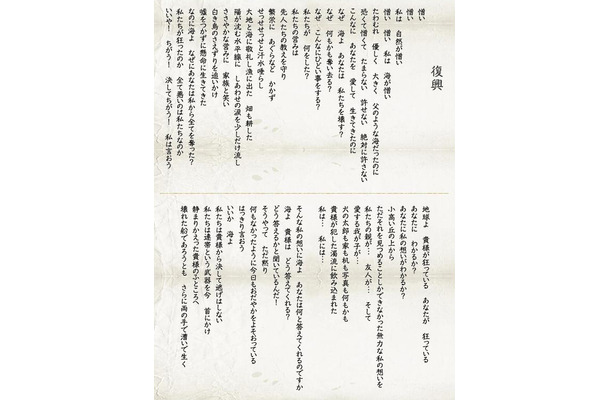 復興
憎い
私は 自然が憎い
憎い 憎い 私は 海が憎い
たわわれ 優しく 大きく 父のような海だったのに
恐くて憎くて たまらない 許せない 絶対に許さない
こんなに あなたを 愛して 生きてきたのに
なぜ 海よ あなたは 私たちを壊す?
なぜ 何もかも奪い去る?
なぜ こんなにひどい事をする?
私たちが 何をした?
私たちの営みは
先人たちの教えを守り
繁栄に あぐらなど かかず
せっせせっせと汗水垂らし
大地と海に敬礼し漁に出た 畑も耕した
陽が沈む水平線に しあわせの涙を少しだけ流し
ささやかな営みに 家族と笑い
白き鳥のさえずりを追いかけ
嘘をつかずに懸命に生きてきた
なのに海よ なぜにあなたは私から全てを奪った?
私たちが狂ったのか 全て悪いのは私たちなのか
いいや! ちがう! 決してちがう! 私は言おう
地球よ 貴様が狂っている あなたが 狂っている
あなたに わかるか?
あなたに私の想いがわかるか?
小高い丘の上から
ただそれを見つめることしかできなかった無力な私の想いを
私たちの親が… 友人が… そして
愛する我が子が…
犬の太郎も家も机も写真も何もかも
貴様が犯した濁流に飲み込まれた
私は… 私には…
そんな私の想いに海よ あなたは何と答えてくれるのですか
海よ 貴様は どう答えてくれる?
どう答えるかと聞いているんだ!
そうやって ただ黙り
何もなかったように今日もおだやかをよそおっている
はっきり言おう
いいか 海よ
私たちは貴様から決して逃げはしない
私たちは連帯という武器を今 首にかけ
静まりかえった貴様のふところへ
壊れた船であろうとも さらに両の手で漕いで生く